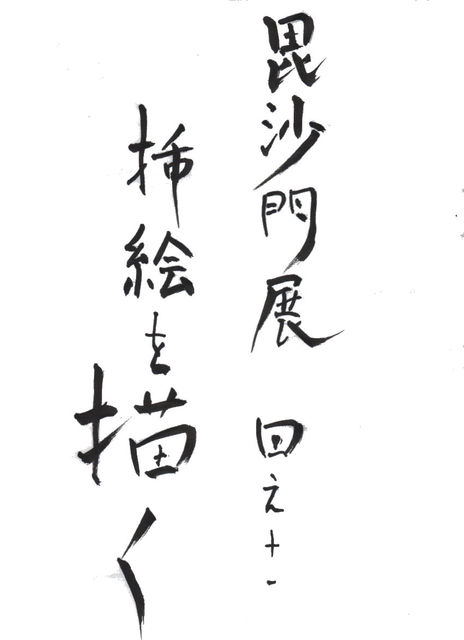 毘沙門展 回之十一
挿絵を描く